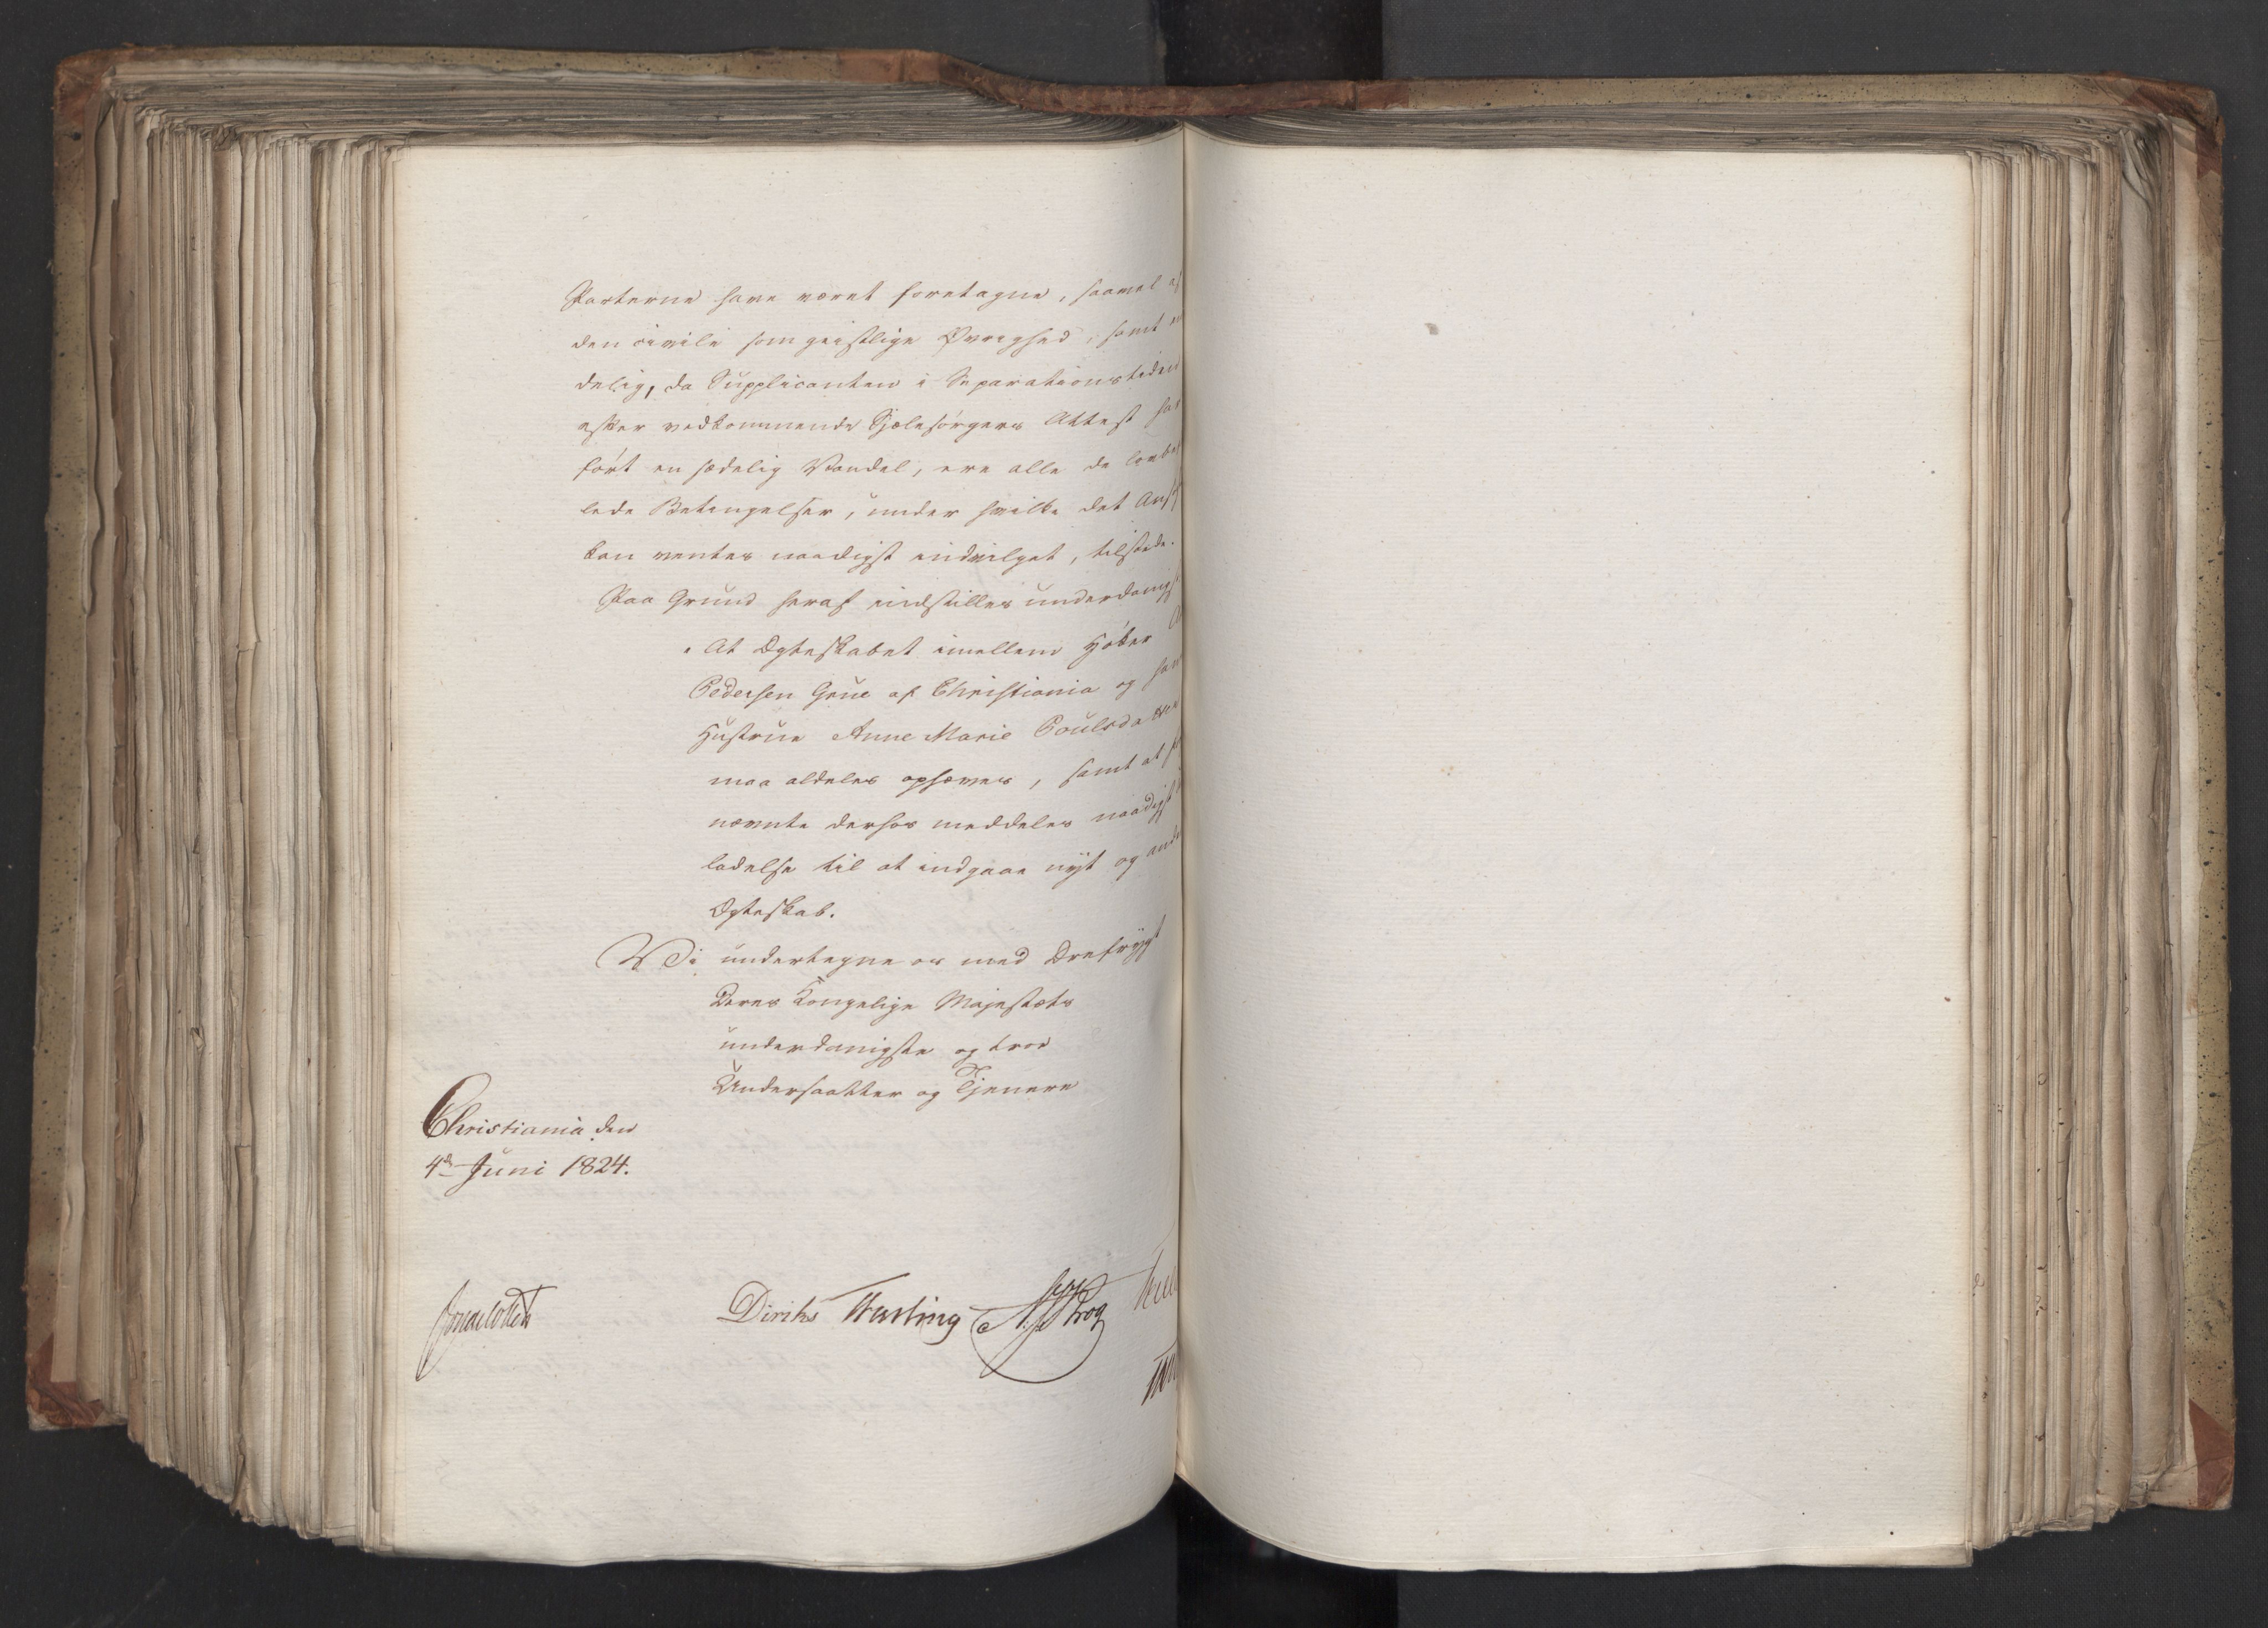 Parterne have været foretagne, saavel af
den civile som geistlige Øvrighed, samt en
delig, da Supplicanten i Separationstiden
efter vedkommende Sjælesørgers Attest har
ført en sædelig Vandel, ere alle de lovbe
lede Betingelser, under hvilke det Ans
kan ventes naadigst indvilget, tilstede.
Paa Grund heraf indstilles underdanigst
At Ægteskabet imellem Høker
Pedersen Grue af Christiania og han
Hustrue Anne Marie Poulsdatter
maa aldeles ophæves, samt at
nævnte derhos meddeles naadigst
ladelse til at indgaae nyt og andet
Ægteskab.
Vi undertegne os med Ærefrygt
Deres Kongelige Majestæts
underdanigste og troe
Undersaatter og Tjenere
Christiania den
4de Juni 1824.
Jonas Collett Diriks Treschow Krog